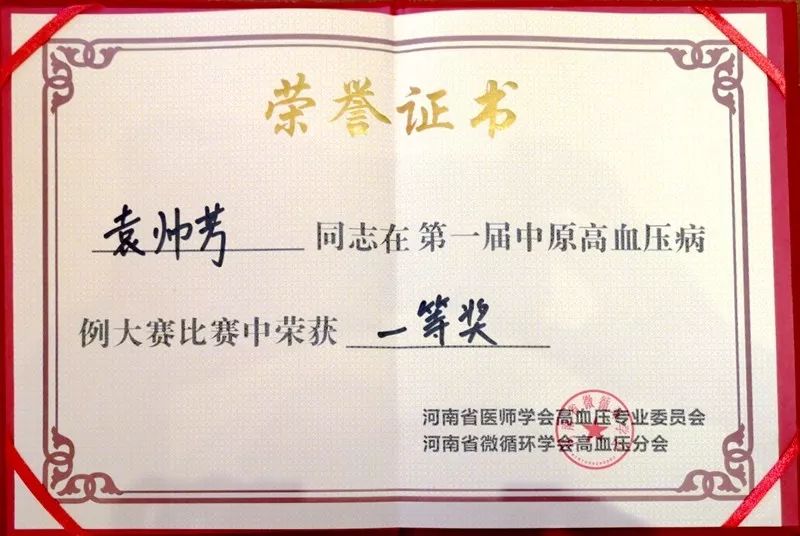 荣誉证书
袁帅芳 同志在 第一届中原高血压病
例大赛比赛中荣获 一等奖
河南省医师学会高血压专业委员会
河南省微循环学会高血压分会